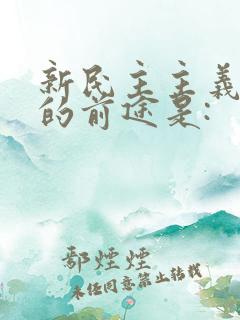 新民主主義
的前途是:
鄢煙煙
未经同意禁止转载